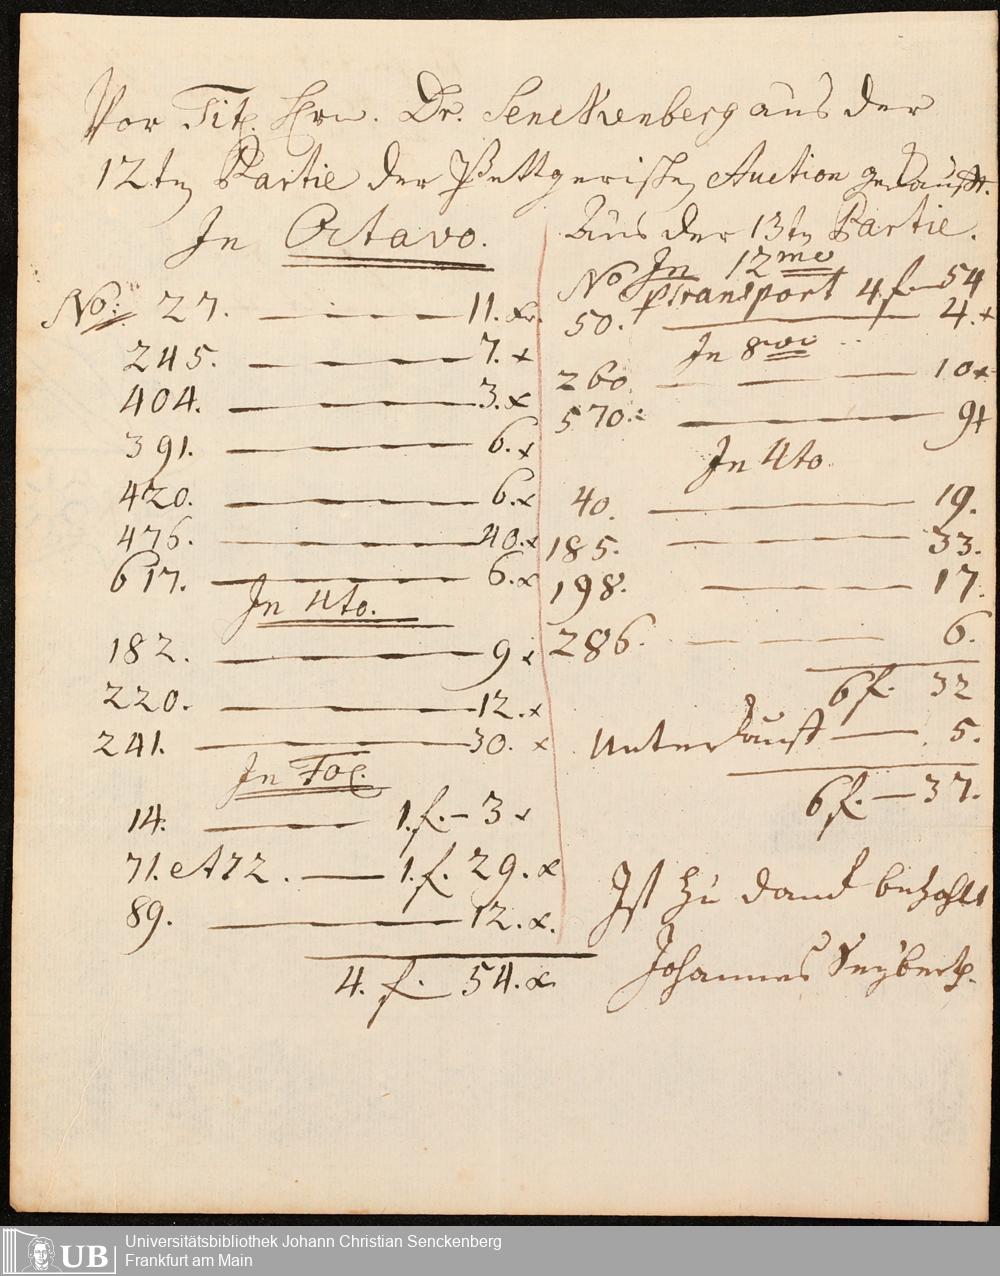 Vor Tit. Hrn. Dr. Senckenberg aus der
12tn Partie der Auction gekaufft.
In Octavo.
No: 27. — 11. xr.
245. — 7. x
404. — 3. x
391. — 6. x
420. — 6. x
476. — 40. x
617. — 6. x
In 4to.
182. — 9 x
220. — 12. x
241. — 30. x
In Fol.
14. — 1. f. — 3 x
71. et 72. — 1. f. 29. x
89. — 12. x.
4. f. 54. x
Aus der 13tn Partie.
No In 12mo
pTransport 4 f — 54
50. — 4. x
In 8vo
260 — 10 x
570. — 9 x
In 4to
40. — 19.
185. — 33.
198. — 17.
286. — 6.
6 f. 32
Unterkauff — 5.
6 f. — 37.
Ist zu danck bezahlt
Johannes Seybert
UB
Universitätsbibliothek Johann Christian Senckenberg
Frankfurt am Main